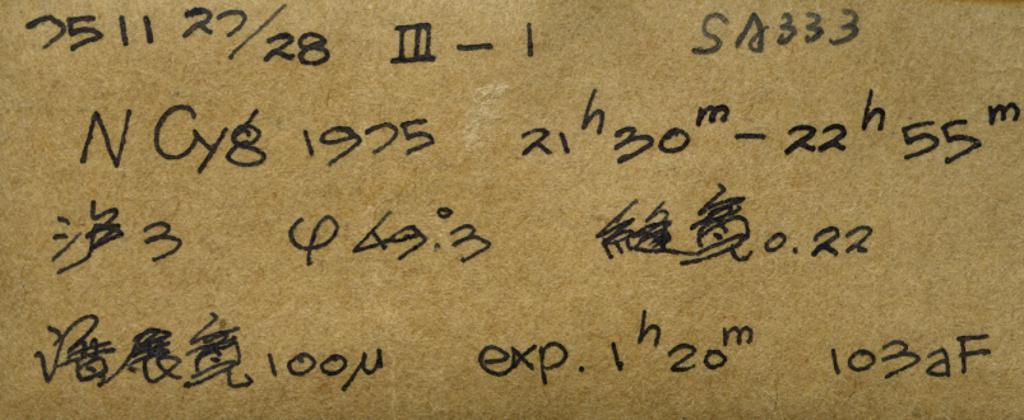 7511 27/28 III - 1 SA333
N Cyg 1975 21h30m - 22h55m
沪3 φ49°.3 縫寬0.22
谱展寬100μ exp. 1h20m 103aF